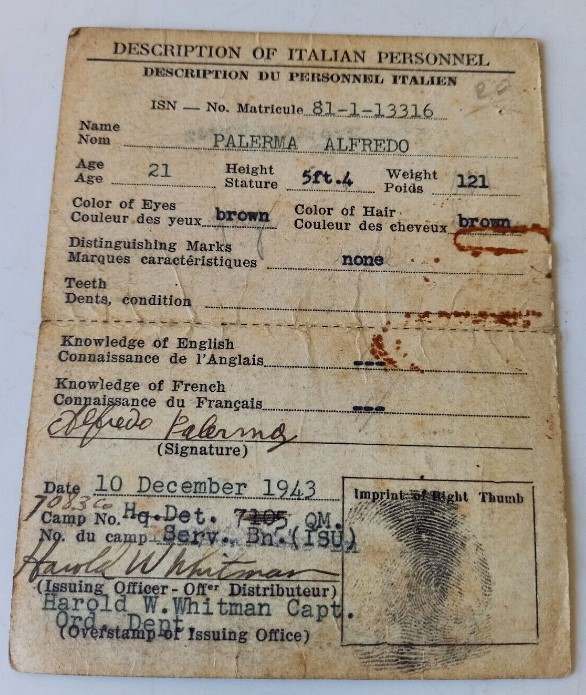 DESCRIPTION OF ITALIAN PERSONNEL
DESCRIPTION DU PERSONNEL ITALIEN
ISN — No. Matricule 81-1-13316
Name
Nom PALERMA ALFREDO
Age
Age 21
Height
Stature 5ft.4
Weight
Poids 121
Color of Eyes
Couleur des yeux brown
Color of Hair
Couleur des cheveux brown
Distinguishing Marks
Marques caractéristiques none
Teeth
Dents, condition
Knowledge of English
Connaissance de l'Anglais ---
Knowledge of French
Connaissance du Français ---
Alfredo Palerma
(Signature)
Date 10 December 1943
7083 Co
Camp No. Hq. Det. 7105 QM.
No. du camp Serv. Bn. (ISU)
Harold W Whitman
(Issuing Officer - Offer Distributeur)
Harold W. Whitman Capt.
Ord. Dept
(Overstamp of Issuing Office)
Imprint of Right Thumb